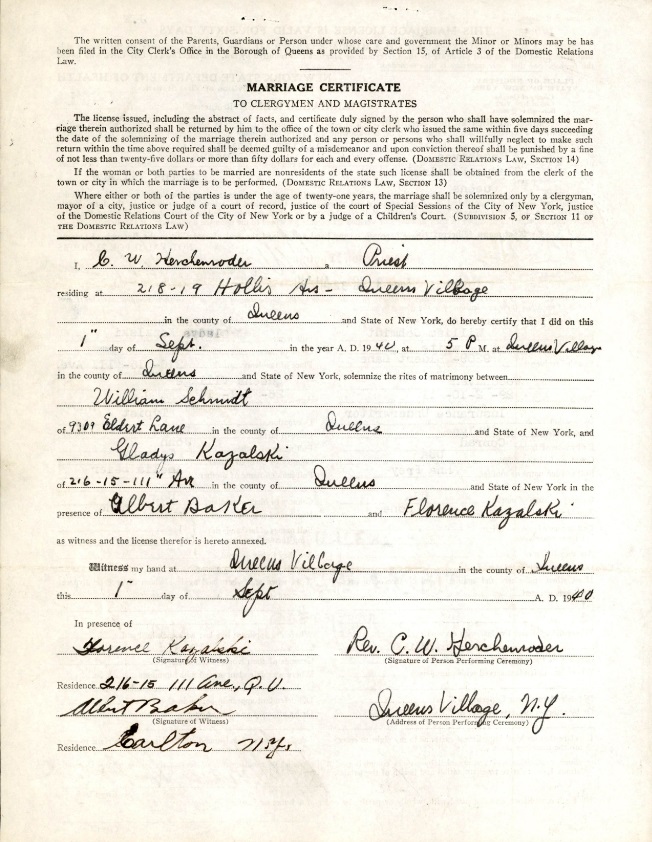 The written consent of the Parents, Guardians or Person under whose care and government the Minor or Minors may be has
been filed in the City Clerk's Office in the Borough of Queens as provided by Section 15, of Article 3 of the Domestic Relations
Law.
MARRIAGE CERTIFICATE
TO CLERGYMEN AND MAGISTRATES
The license issued, including the abstract of facts, and certificate duly signed by the person who shall have solemnized the mar-
riage therein authorized shall be returned by him to the office of the town or city clerk who issued the same within five days succeeding
the date of the solemnizing of the marriage therein authorized and any person or persons who shall willfully neglect to make such
return within the time above required shall be deemed guilty of a misdemeanor and upon conviction thereof shall be punished by a fine
of not less than twenty-five dollars or more than fifty dollars for each and every offense. (DOMESTIC RELATIONS LAW, SECTION 14)
If the woman or both parties to be married are nonresidents of the state such license shall be obtained from the clerk of the
town or city in which the marriage is to be performed. (DOMESTIC RELATIONS LAW, SECTION 13)
Where either or both of the parties is under the age of twenty-one years, the marriage shall be solemnized only by a clergyman,
mayor of a city, justice or judge of a court of record, justice of the court of Special Sessions of the City of New York, justice
of the Domestic Relations Court of the City of New York or by a judge of a Children's Court. (SUBDIVISION 5, OF SECTION 11 OF
THE DOMESTIC RELATIONS LAW)
I, C. W. Herchenroder a Priest
residing at 218-19 Hollis Ave - Queens Village
in the county of Queens and State of New York, do hereby certify that I did on this
1" day of Sept. in the year A. D. 1940, at 5 P M. at Queens Village
in the county of Queens and State of New York, solemnize the rites of matrimony between
William Schmidt
of 9309 Eldert Lane in the county of Queens and State of New York, and
Gladys Kazalski
of 216-15-111" Av in the county of Queens and State of New York in the
presence of Albert Baker and Florence Kazalski
as witness and the license therefor is hereto annexed.
Witness my hand at Queens Village in the county of Queens
this 1" day of Sept A. D. 1940
In presence of
Florence Kazalski Rev. C. W. Herchenroder
(Signature of Witness) (Signature of Person Performing Ceremony)
Residence 216-15 111 Ave., Q. V.
Albert Baker Queens Village, N.Y.
(Signature of Witness) (Address of Person Performing Ceremony)
Residence Carlton N.Y.